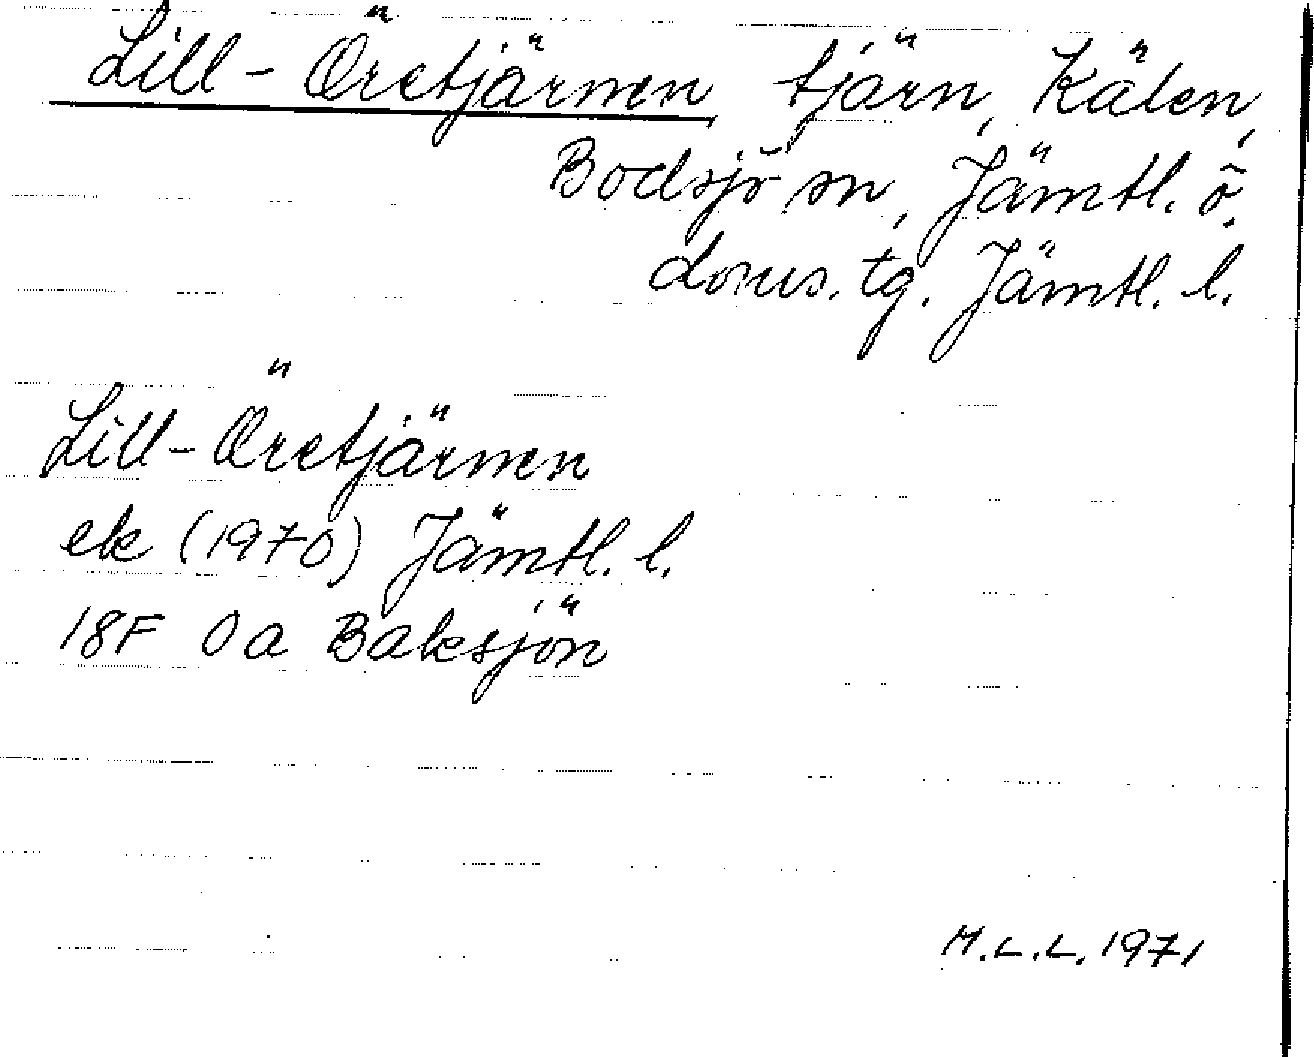 Lill-Öretjärnen tjärn, Kälen,
Bodsjö sn, Jämtl. ö.
doms. tg. Jämtl. l.
Lill-Öretjärnen
ek (1970) Jämtl. l.
18F 0a Baksjön
M.L.L. 1971